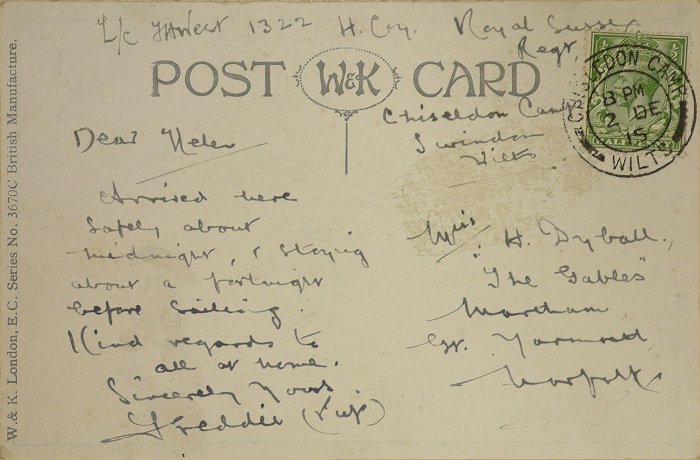 L/c West 1322 H. Coy. Royal Sussex
Regt.
POST W&K CARD
Chiseldon Camp
Swindon
Wilts
CHISLEDON CAMP
8 PM
2 DE
15
WILTS
Dear Helen
Arrived here
safely about
midnight, & staying
about a fortnight
before sailing.
Kind regards to
all at home.
Sincerely Yours
Freddie
Miss H. Dyball.,
"The Gables"
Martham,
Gt. Yarmouth
Norfolk
W. & K. London, E.C. Series No. 3670C British Manufacture.